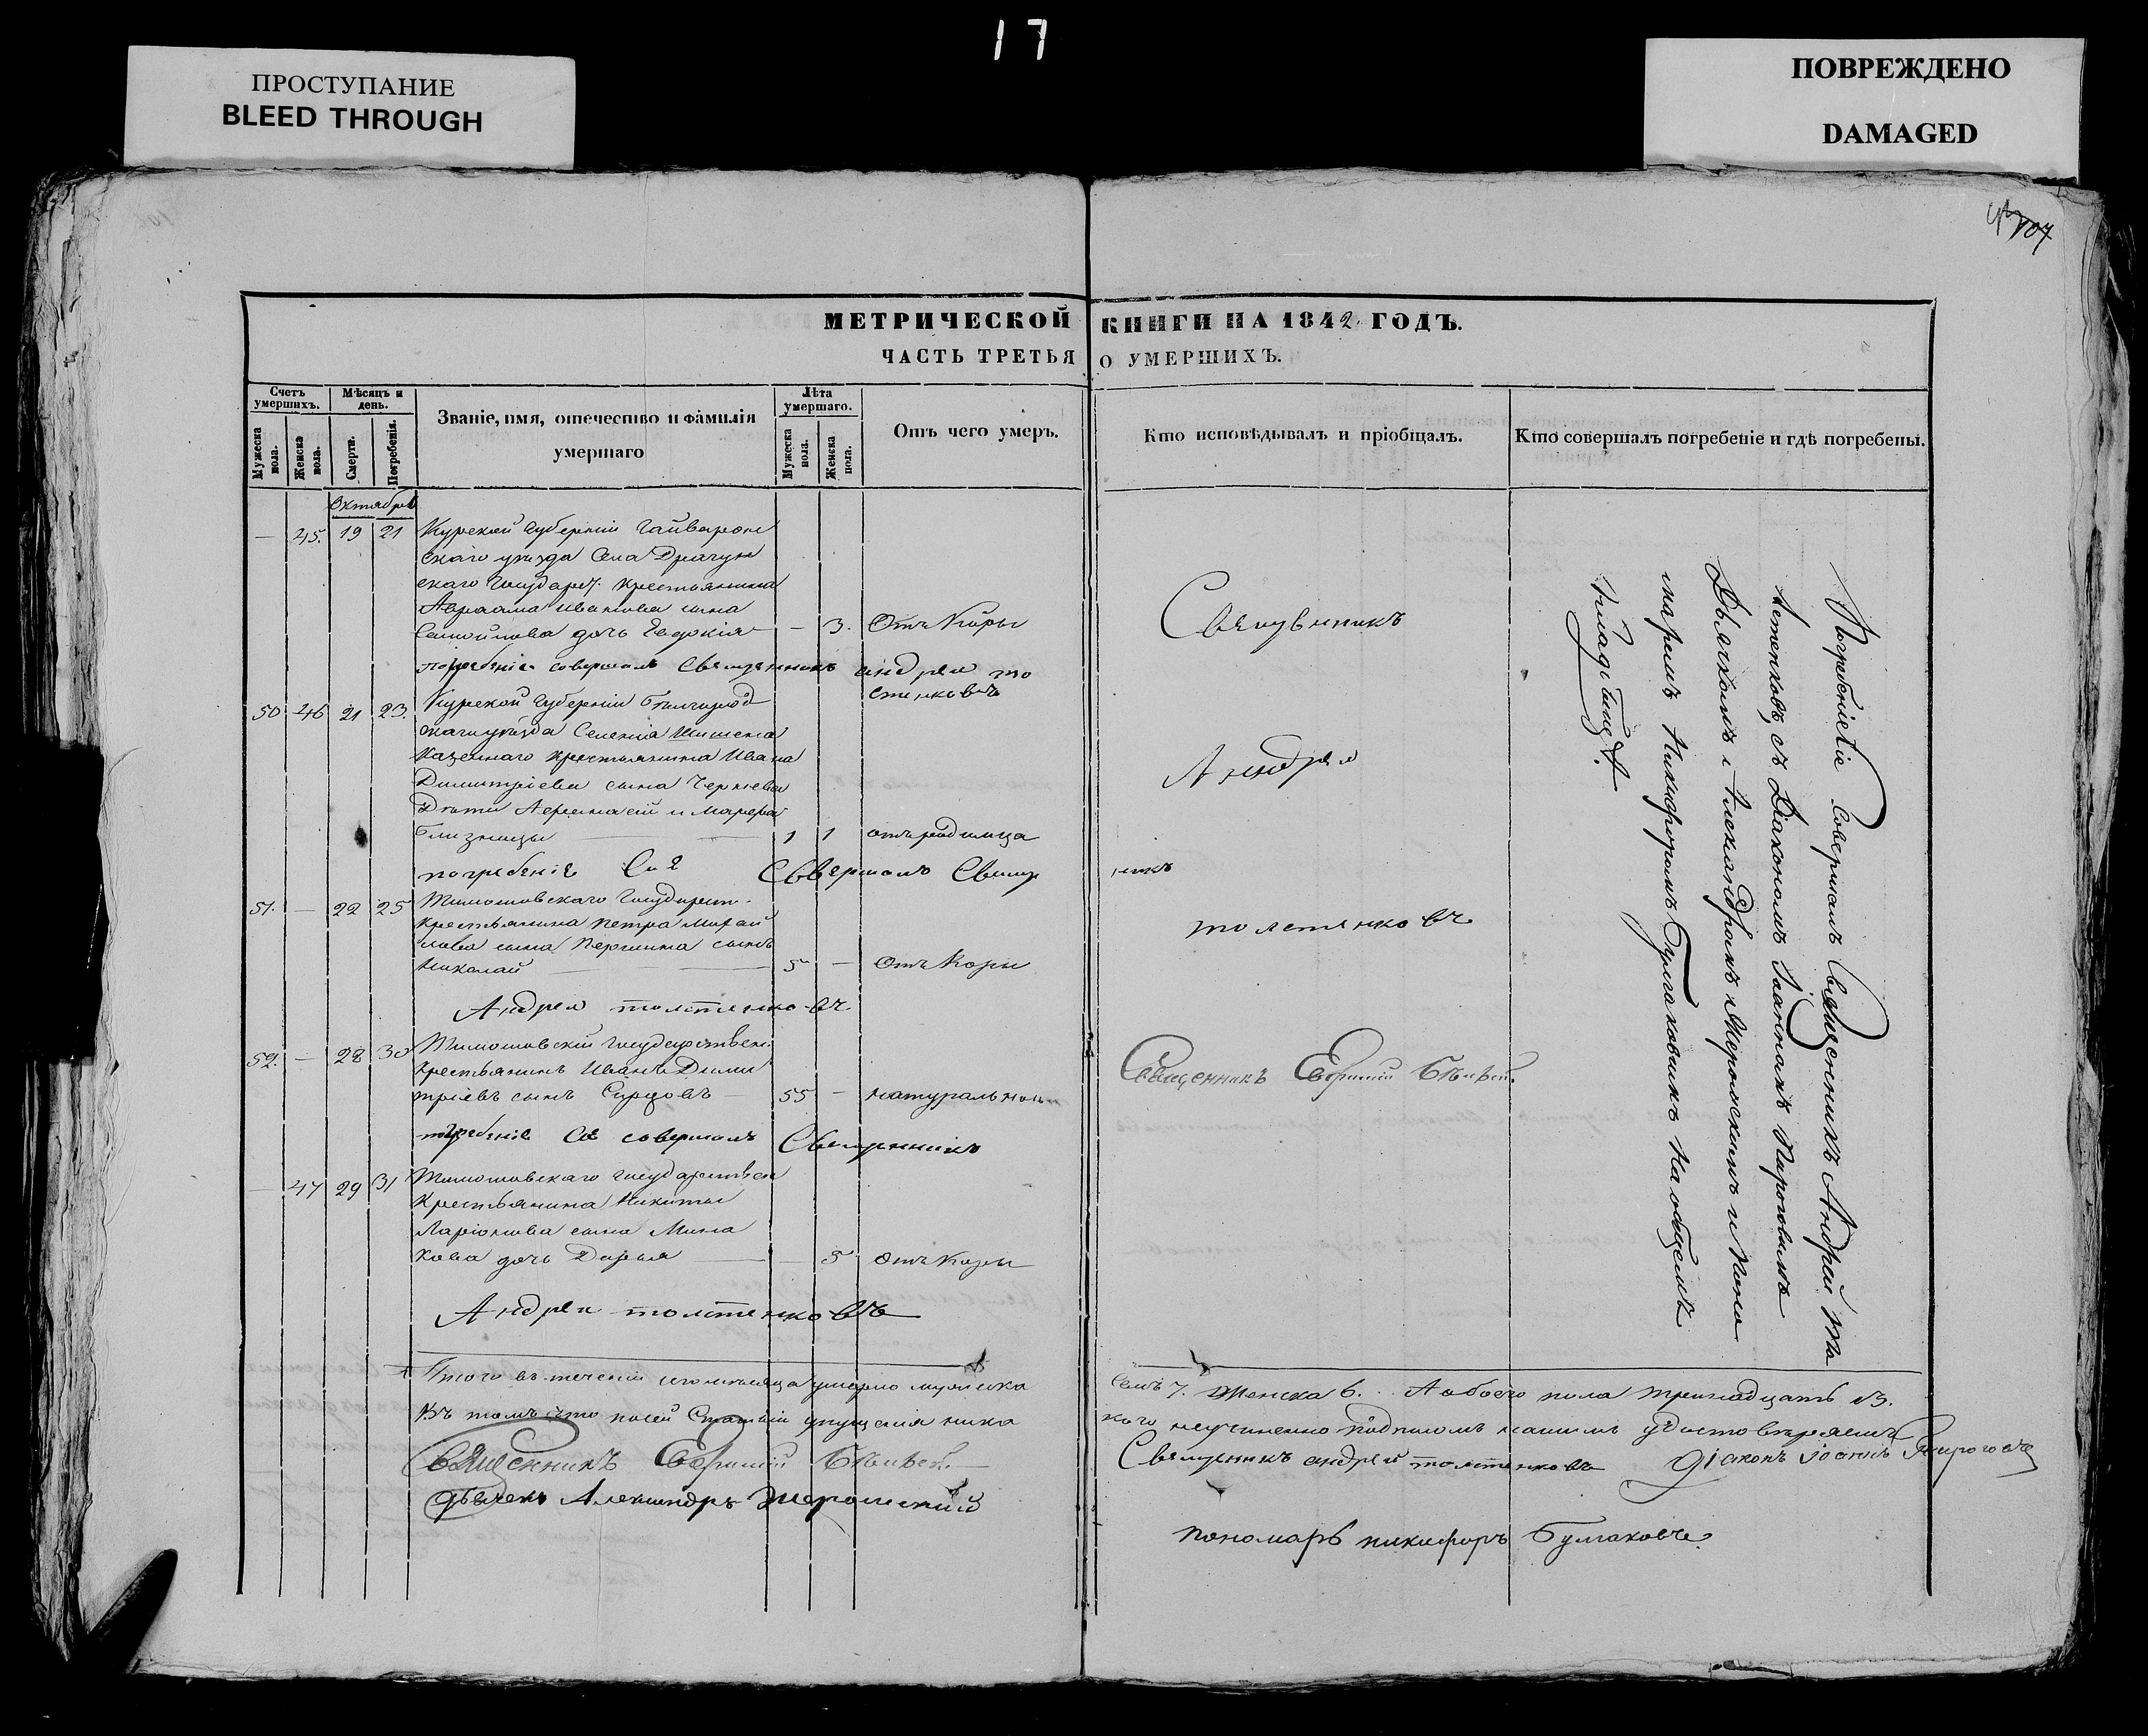 17
ПРОСТУПАНИЕ
BLEED THROUGH
ПОВРЕЖДЕНО
DAMAGED
107
МЕТРИЧЕСКОЙ КНИГИ НА 1842 ГОДЪ.
ЧАСТЬ ТРЕТЬЯ О УМЕРШИХЪ.
Счетъ умершихъ.
Мѣсяцъ и день.
Званіе, имя, отечество и фамилія умершаго
Лѣта умершаго.
Отъ чего умеръ.
Кто исповѣдывалъ и пріобщалъ.
Кто совершалъ погребеніе и гдѣ погребены.
Мужеска пола.
Женска пола.
Смерти.
Погребенія.
Мужеска пола.
Женска пола.
Октябрь
— 45. 19 21 Курской Губерніи Гайворон
скаго уѣзда Села Драгун
скаго Государ. крестьянина
Авраама Иванова сына
Самойлова дочь Евдокія — 3. Отъ Кори
погребеніе совершалъ Священникъ андрей то
стенковъ
50 46 21 23. Курской Губерніи Бѣлгород
скаго уѣзда Селенія Шишена
Казеннаго крестьянина Ивана
Димитріева сына Чернева
Дѣти Афанасій и Марфа
близнецы 1 1 отъ родимца
погребеніе Сіе Совершалъ Священникъ
51. — 22 25 Тимошовскаго Государст.
крестьянина Петра Михай
лова сына Першина сынъ
Николай 5 — Отъ Кори
Андрей толстенковъ
52. — 28 30 Тимошовскій Государствен.
Крестьянинъ Иванъ Дими
тріевъ сынъ Сирцовъ 55 — натуральною
погребеніе Сіе совершалъ Священникъ
— 47 29 31 Тимошовскаго Государствен
Крестьянина Никиты
Ларіонова сына Мина
кова дочь Дарья — 5 Отъ Кори
Андрей толстенковъ
Священникъ
Андрей
толстенковъ
Священникъ Евфимій
Погребеніе Сіе Совершалъ Священникъ Андрей То
лстенковъ, съ Діакономъ Іоанномъ Пироговымъ
Дьячкомъ Александромъ Жеромскимъ и Поно
маремъ Никифоромъ Булгаковымъ На общемъ
Кладбищѣ.
Итого въ теченіи сего мѣсяца умерло мужеска семь 7. Женска 6. А обоего пола тринадцать 13.
Въ томъ что по сей Статьи упущенія ника
кого неучиненно подписомъ нашимъ удостовѣряемъ
Священникъ Евфимій
Священникъ андрей толстенковъ Діаконъ Іоаннъ Пироговъ
Дьячекъ Александръ Жеромский
пономарь никифоръ Булгаковъ